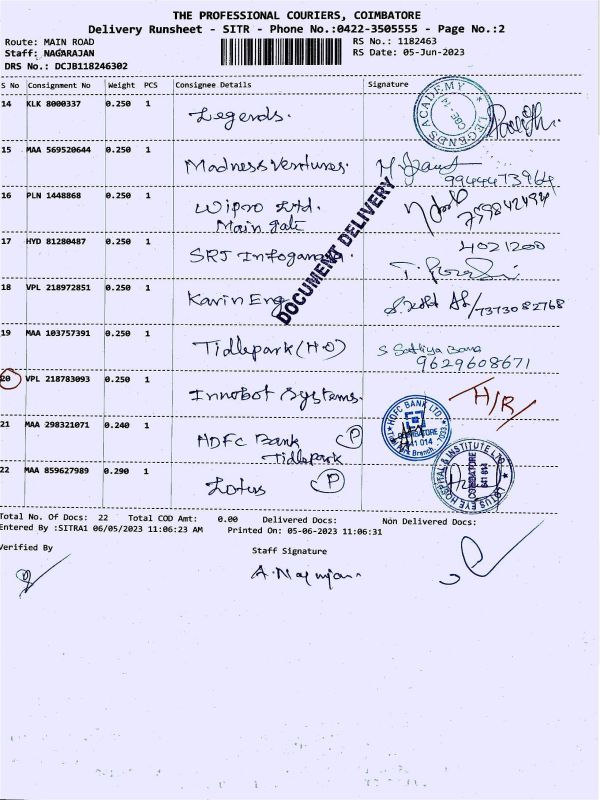 THE PROFESSIONAL COURIERS, COIMBATORE
Delivery Runsheet - SITR - Phone No.:0422-3505555 - Page No.:2
Route: MAIN ROAD
RS No.: 1182463
Staff: NAGARAJAN
RS Date: 05-Jun-2023
DRS No.: DCJB118246302
S No Consignment No Weight PCS Consignee Details Signature
14 KLK 8000337 0.250 1 Legends.
LEGENDS ACADEMY
CBE - 14
15 MAA 569520644 0.250 1 Madness Ventures.
9944473964
16 PLN 1448868 0.250 1 Wipro Ltd.
Main Gate
759842494
17 HYD 81280487 0.250 1 SRJ Infogan
4021200
DOCUMENT DELIVERY
18 VPL 218972851 0.250 1 Karin Eng
/7373082768
19 MAA 103757391 0.250 1 Tidlepark (H.O)
S Sathiya Bama
9629608671
20 VPL 218783093 0.250 1 Innobot Systems.
H/R/
21 MAA 298321071 0.240 1 HDFC Bank P
Tidlepark
HDFC BANK LTD.
COIMBATORE
641 014
Branch - 7033
22 MAA 859627989 0.290 1 Lotus P
LOTUS EYE HOSPITAL & INSTITUTE LTD.
COIMBATORE
641 014
Total No. Of Docs: 22 Total COD Amt: 0.00 Delivered Docs: Non Delivered Docs:
Entered By :SITRA1 06/05/2023 11:06:23 AM Printed On: 05-06-2023 11:06:31
Verified By
Staff Signature